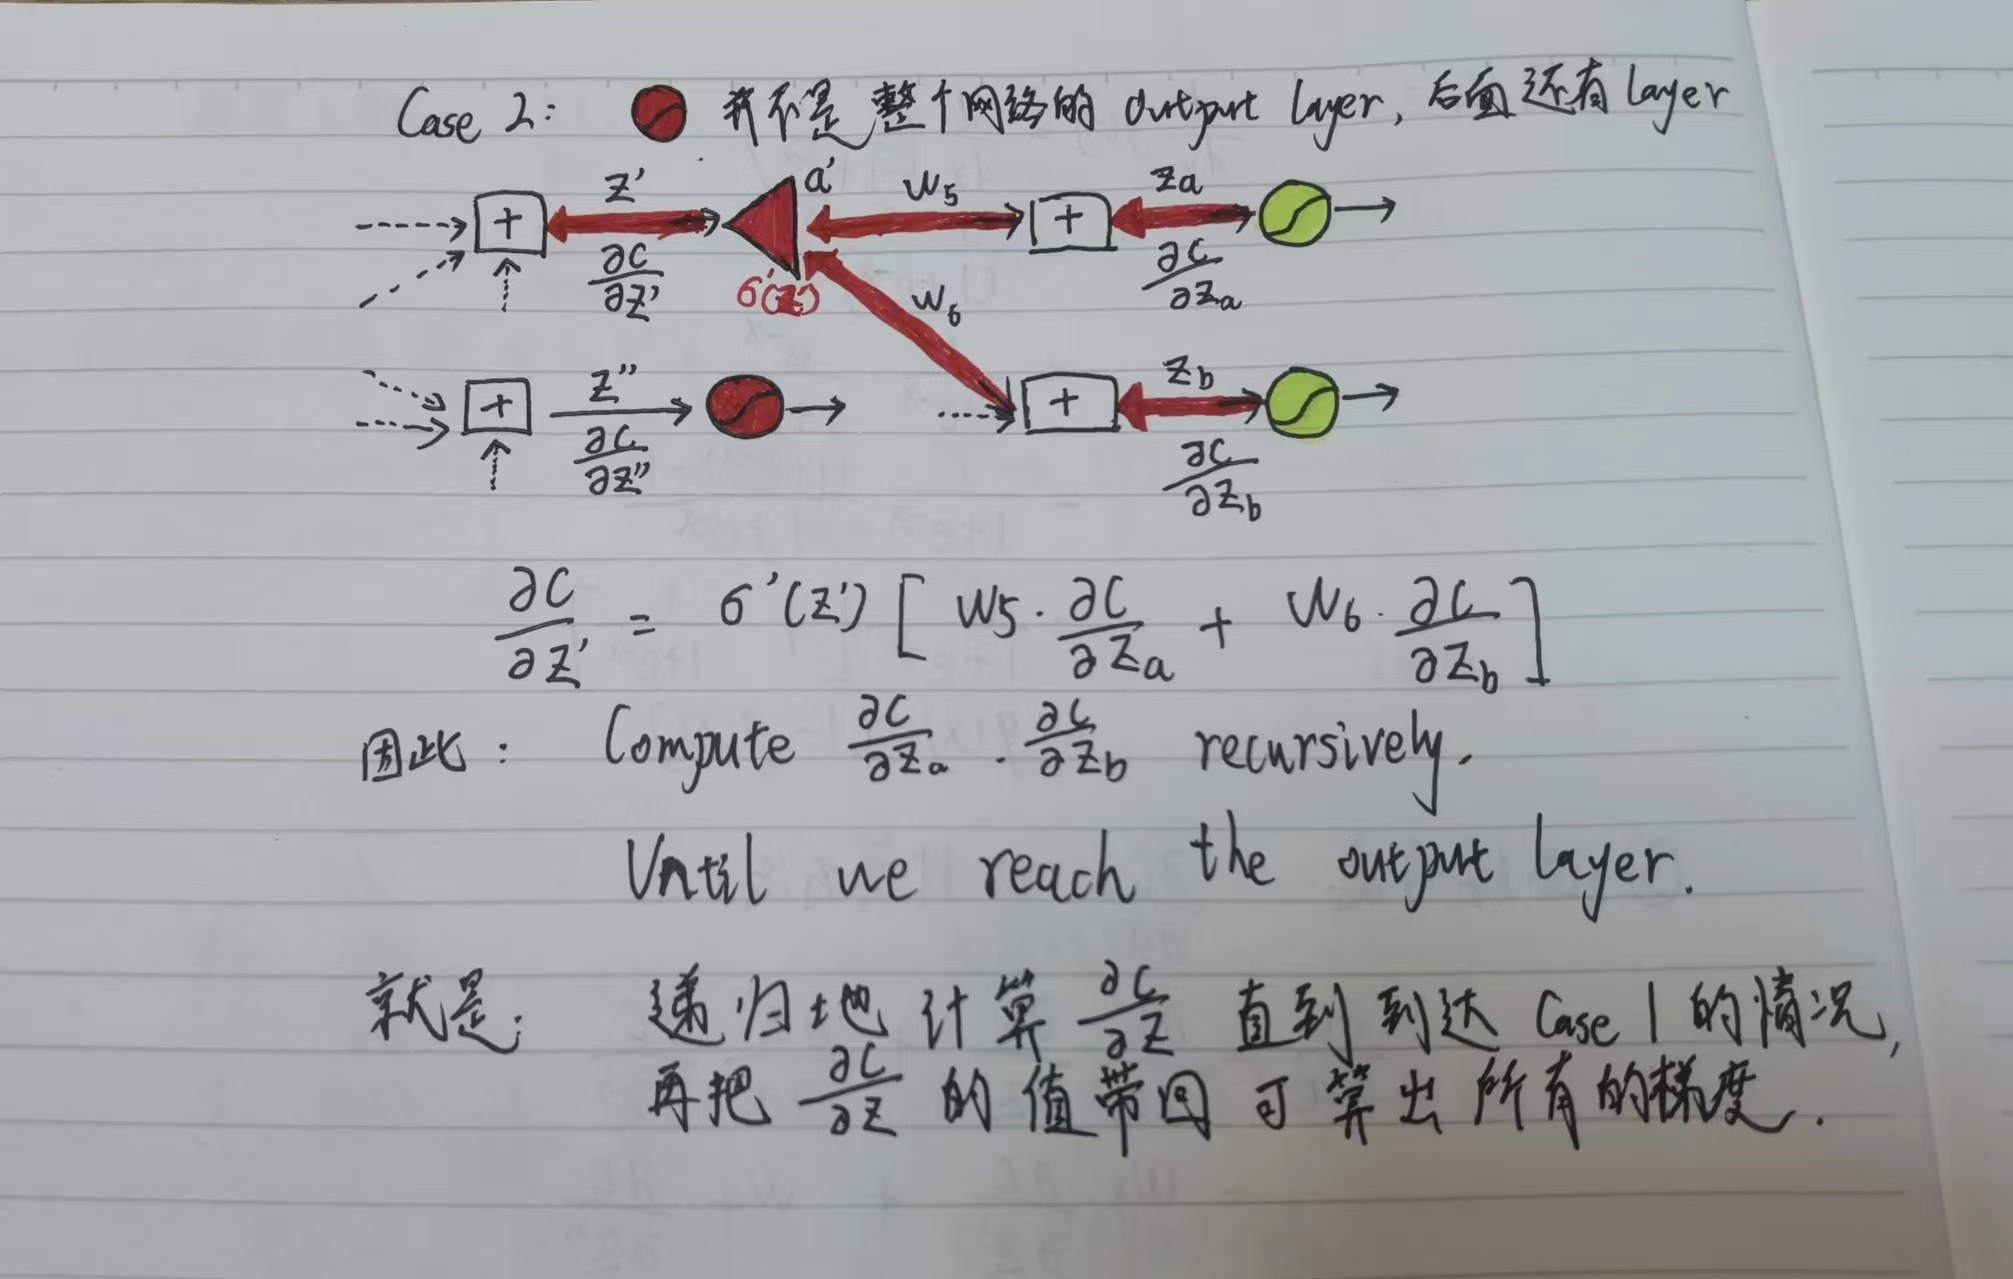 Case 2: 我不是整个网络的 output layer, 后面还有 layer
z' a' w5 za
+ +
∂C/∂z' σ'(z') w6 ∂C/∂za
z'' zb
+ +
∂C/∂z'' ∂C/∂zb
∂C/∂z' = σ'(z') [ w5 · ∂C/∂za + w6 · ∂C/∂zb ]
因此: Compute ∂C/∂za . ∂C/∂zb recursively.
Until we reach the output layer.
就是: 递归地计算 ∂C/∂z 直到到达 Case 1 的情况,
再把 ∂C/∂z 的值带回 可算出所有的梯度.